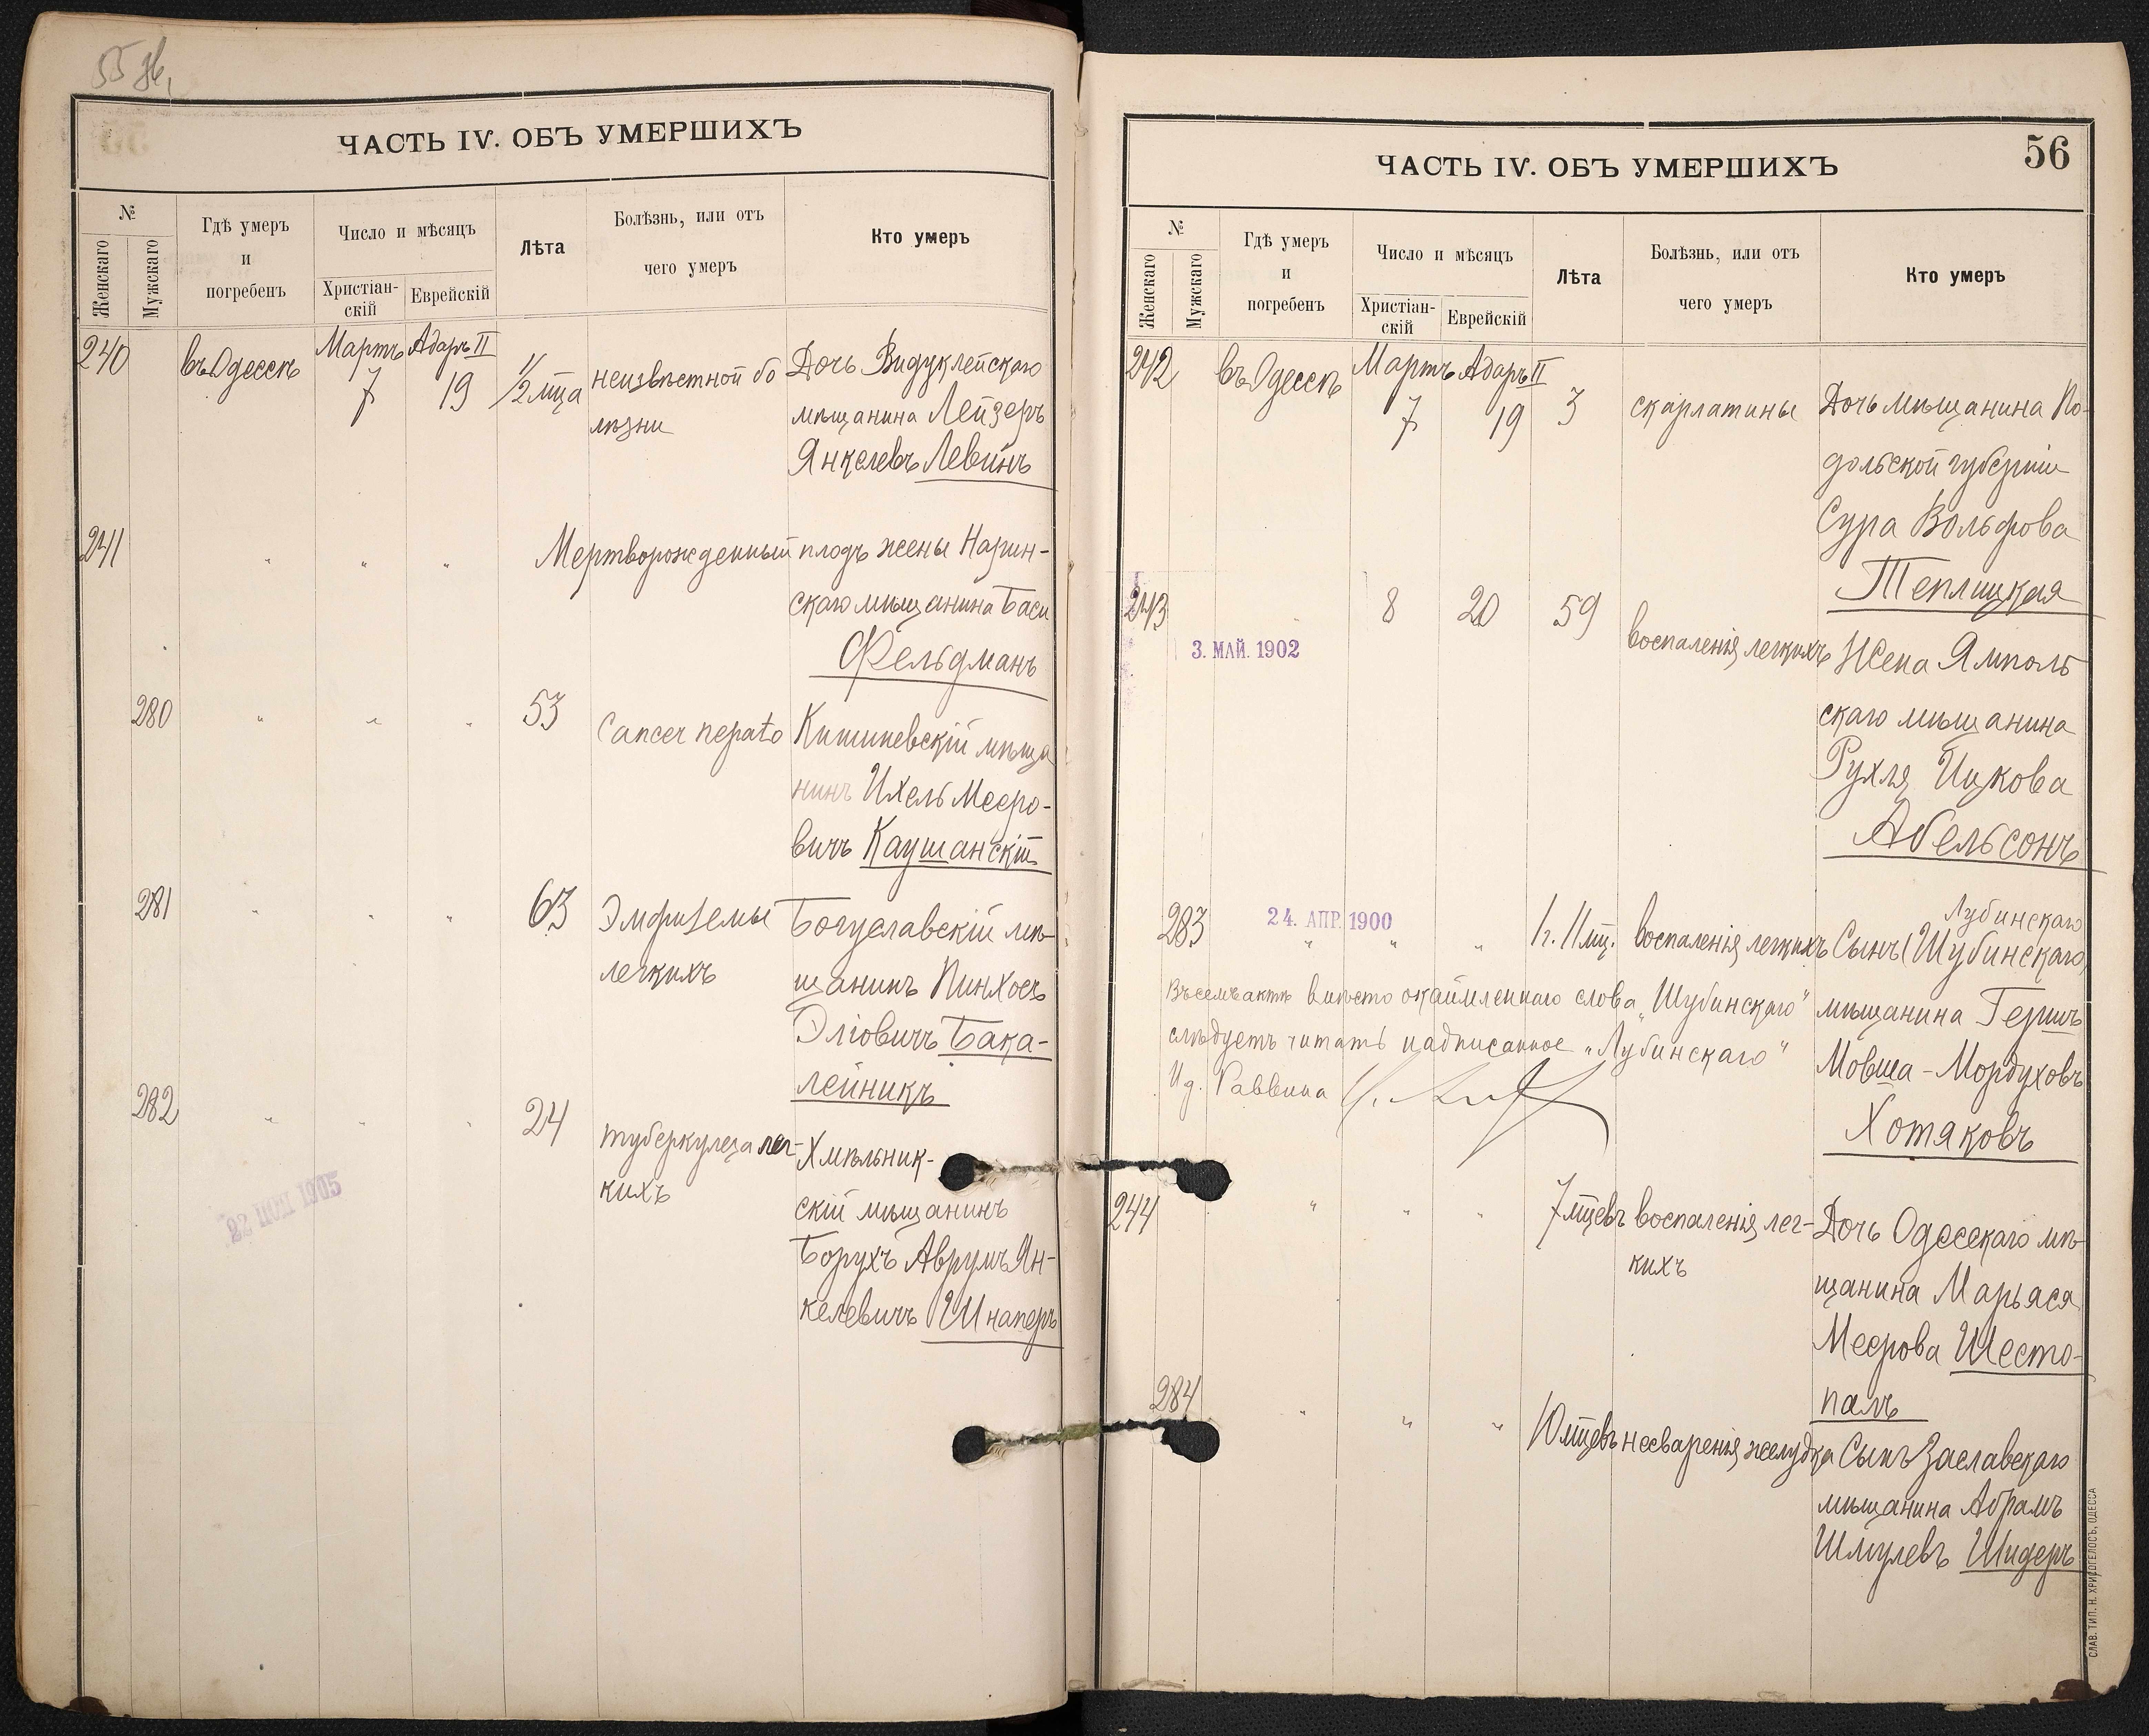 55 об.
ЧАСТЬ IV. ОБЪ УМЕРШИХЪ
№
Женскаго
Мужскаго
Гдѣ умеръ
и
погребенъ
Число и мѣсяцъ
Христіан-
скій
Еврейскій
Лѣта
Болѣзнь, или отъ
чего умеръ
Кто умеръ
240 въ Одессѣ Мартъ 7 Адаръ II 19 1 1/2 мца неизвѣстной бо
лѣзни
Дочь Видуклейскаго
мѣщанина Лейзеръ
Янкелевъ Левинъ
241 " " " Мертворожденный плодъ жены
скаго мѣщанина Баси
Фельдманъ
280 " " " 53 Cancer hepato Кишиневскій мѣща
нинъ Ихель Мееро-
вичъ Каушанскій
281 " " " 63 Эмфиземы
легкихъ
Богуславскій мѣ-
щанинъ Пинхосъ
Эліовичъ Бака-
лейникъ
282 " " " 24 туберкулеза лег-
кихъ
Хмѣльник-
скій мѣщанинъ
Борухъ Аврумъ Ян-
келевичъ Шнаперъ
1905
ЧАСТЬ IV. ОБЪ УМЕРШИХЪ
56
№
Женскаго
Мужскаго
Гдѣ умеръ
и
погребенъ
Число и мѣсяцъ
Христіан-
скій
Еврейскій
Лѣта
Болѣзнь, или отъ
чего умеръ
Кто умеръ
242 въ Одессѣ Мартъ 7 Адаръ II 19 3 скарлатины Дочь мѣщанина По-
дольской губерніи
Сура Вольфова
Теплицкая
243 8 20 59 воспаленія легкихъ Жена Ямполь
скаго мѣщанина
Рухля Ицкова
Абельсонъ
3. МАЙ. 1902
24. АПР. 1900
283 " " " 1 г. 11 мц. воспаленія легкихъ Сынъ (Шубинскаго)
Лубинскаго
мѣщанина Гершъ
Мовша-Мордуховъ
Хотяковъ
Въ семъ актѣ вмѣсто окаймленнаго слова "Шубинскаго"
слѣдуетъ читать надписанное "Лубинскаго"
И д. Раввина
244 " " " 7 мцевъ воспаленія лег-
кихъ
Дочь Одесскаго мѣ-
щанина Марьяся
Меерова Шесто-
палъ
284 " " " 10 мцевъ несваренія желудка Сынъ Заславскаго
мѣщанина Абрамъ
Шмулевъ Шидеръ
СЛАВ. ТИП. Н. ХРИСОГЕЛОСЪ, ОДЕССА